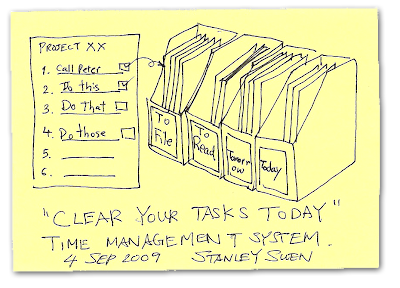 PROJECT XX
1. Call Peter
2. Do this
3. Do That
4. Do those
5.
6.
To File
To Read
Tomorrow
Today
"CLEAR YOUR TASKS TODAY"
TIME MANAGEMENT SYSTEM.
4 SEP 2009 STANLEY SUEN